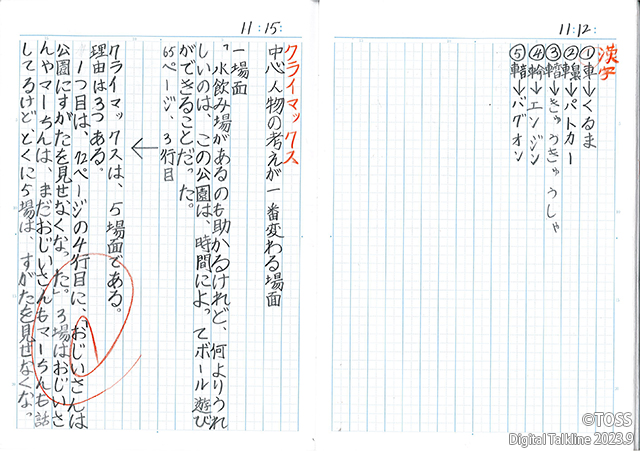 11:12:
漢字
①車→くるま
②→パトカー
③→きゅうきゅうしゃ
④→エンジン
⑤→バグオン
11:15:
クライマックス
中心人物の考えが一番変わる場面
一場面
「水飲み場があるのも助かるけれど、何よりうれ
しいのは、この公園は、時間によってボール遊び
ができることだった。
65ページ、3行目
←
クライマックスは、5場面である。
理由は3つある。
1つ目は、72ページの4行目に、「おじいさんは
公園にすがたを見せなくなった」3場はおじいさ
んやマーちんは、まだおじいさんもマーちんも話
してるけど、とくに5場は、すがたを見せなくなっ
©TOSS
Digital Talkline 2023.9